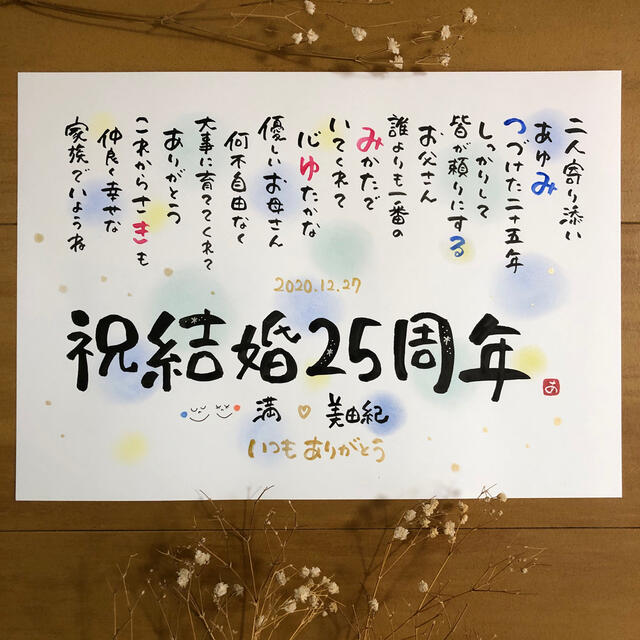 二人寄り添い
あゆみ
つづけた二十五年
しっかりして
皆が頼りにする
お父さん
誰よりも一番の
みかたで
いてくれて
心ゆたかな
優しいお母さん
何不自由なく
大事に育ててくれて
ありがとう
これからさきも
仲良く幸せな
家族でいようね
2020.12.27
祝結婚25周年
満♡美由紀
いつもありがとう